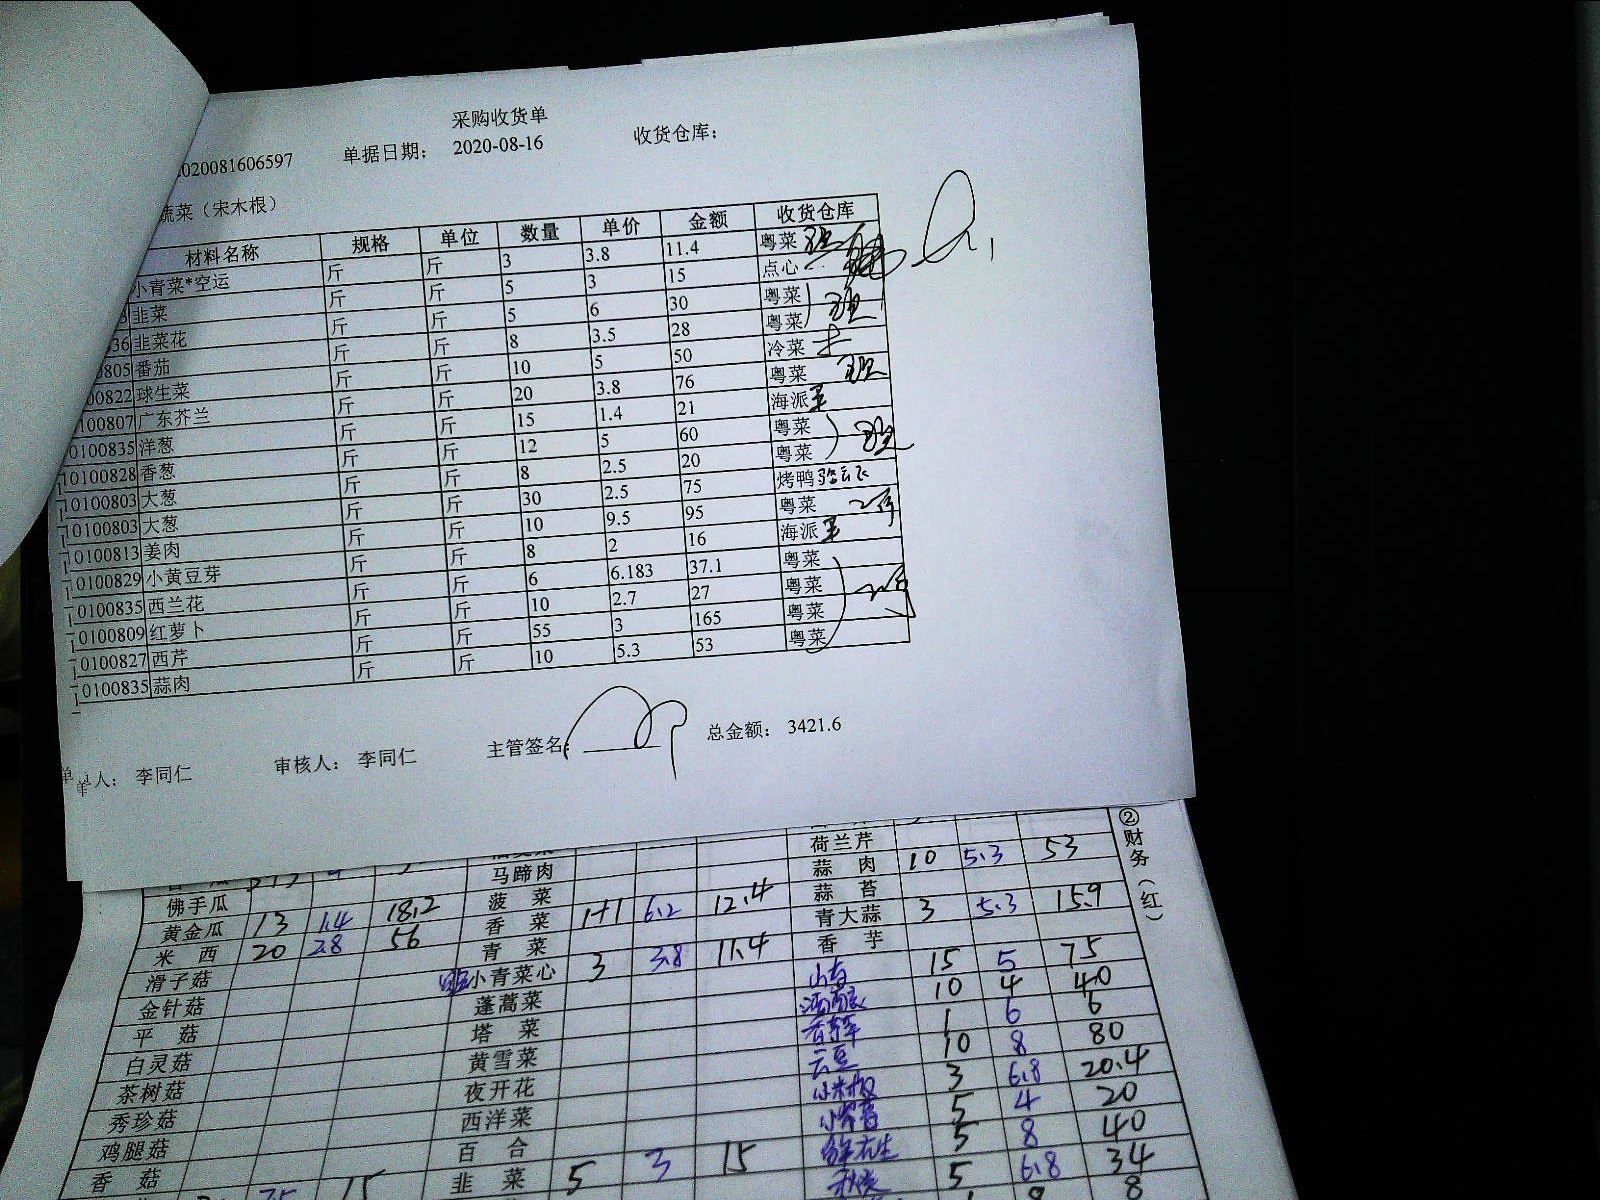 采购收货单
020081606597 单据日期： 2020-08-16 收货仓库：
蔬菜（宋木根）
材料名称 规格 单位 数量 单价 金额 收货仓库
小青菜*空运 斤 斤 3 3.8 11.4 粤菜
韭菜 斤 斤 5 3 15 点心
36 韭菜花 斤 斤 5 6 30 粤菜
0805 番茄 斤 斤 8 3.5 28 粤菜
00822 球生菜 斤 斤 10 5 50 冷菜
100807 广东芥兰 斤 斤 20 3.8 76 粤菜
0100835 洋葱 斤 斤 15 1.4 21 海派
10100828 香葱 斤 斤 12 5 60 粤菜
10100803 大葱 斤 斤 8 2.5 20 粤菜
10100803 大葱 斤 斤 30 2.5 75 烤鸭
10100813 姜肉 斤 斤 10 9.5 95 粤菜
10100829 小黄豆芽 斤 斤 8 2 16 海派
10100835 西兰花 斤 斤 6 6.183 37.1 粤菜
10100809 红萝卜 斤 斤 10 2.7 27 粤菜
10100827 西芹 斤 斤 55 3 165 粤菜
10100835 蒜肉 斤 斤 10 5.3 53 粤菜
单人： 李同仁 审核人： 李同仁 主管签名： 总金额： 3421.6
②财务（红）
荷兰芹
马蹄肉 蒜肉 10 5.3 53
佛手瓜 菠菜 蒜苔
黄金瓜 13 1.4 18.2 香菜 1+1 6.2 12.4 青大蒜 3 5.3 15.9
米西 20 2.8 56 青菜 香芋
滑子菇 小青菜心 3 3.8 11.4 15 5 75
金针菇 蓬蒿菜 10 4 40
平菇 塔菜 1 6 6
白灵菇 黄雪菜 云豆 10 8 80
茶树菇 夜开花 小米椒 3 6.8 20.4
秀珍菇 西洋菜 5 4 20
鸡腿菇 百合 5 8 40
香菇 韭菜 5 3 15 5 6.8 34